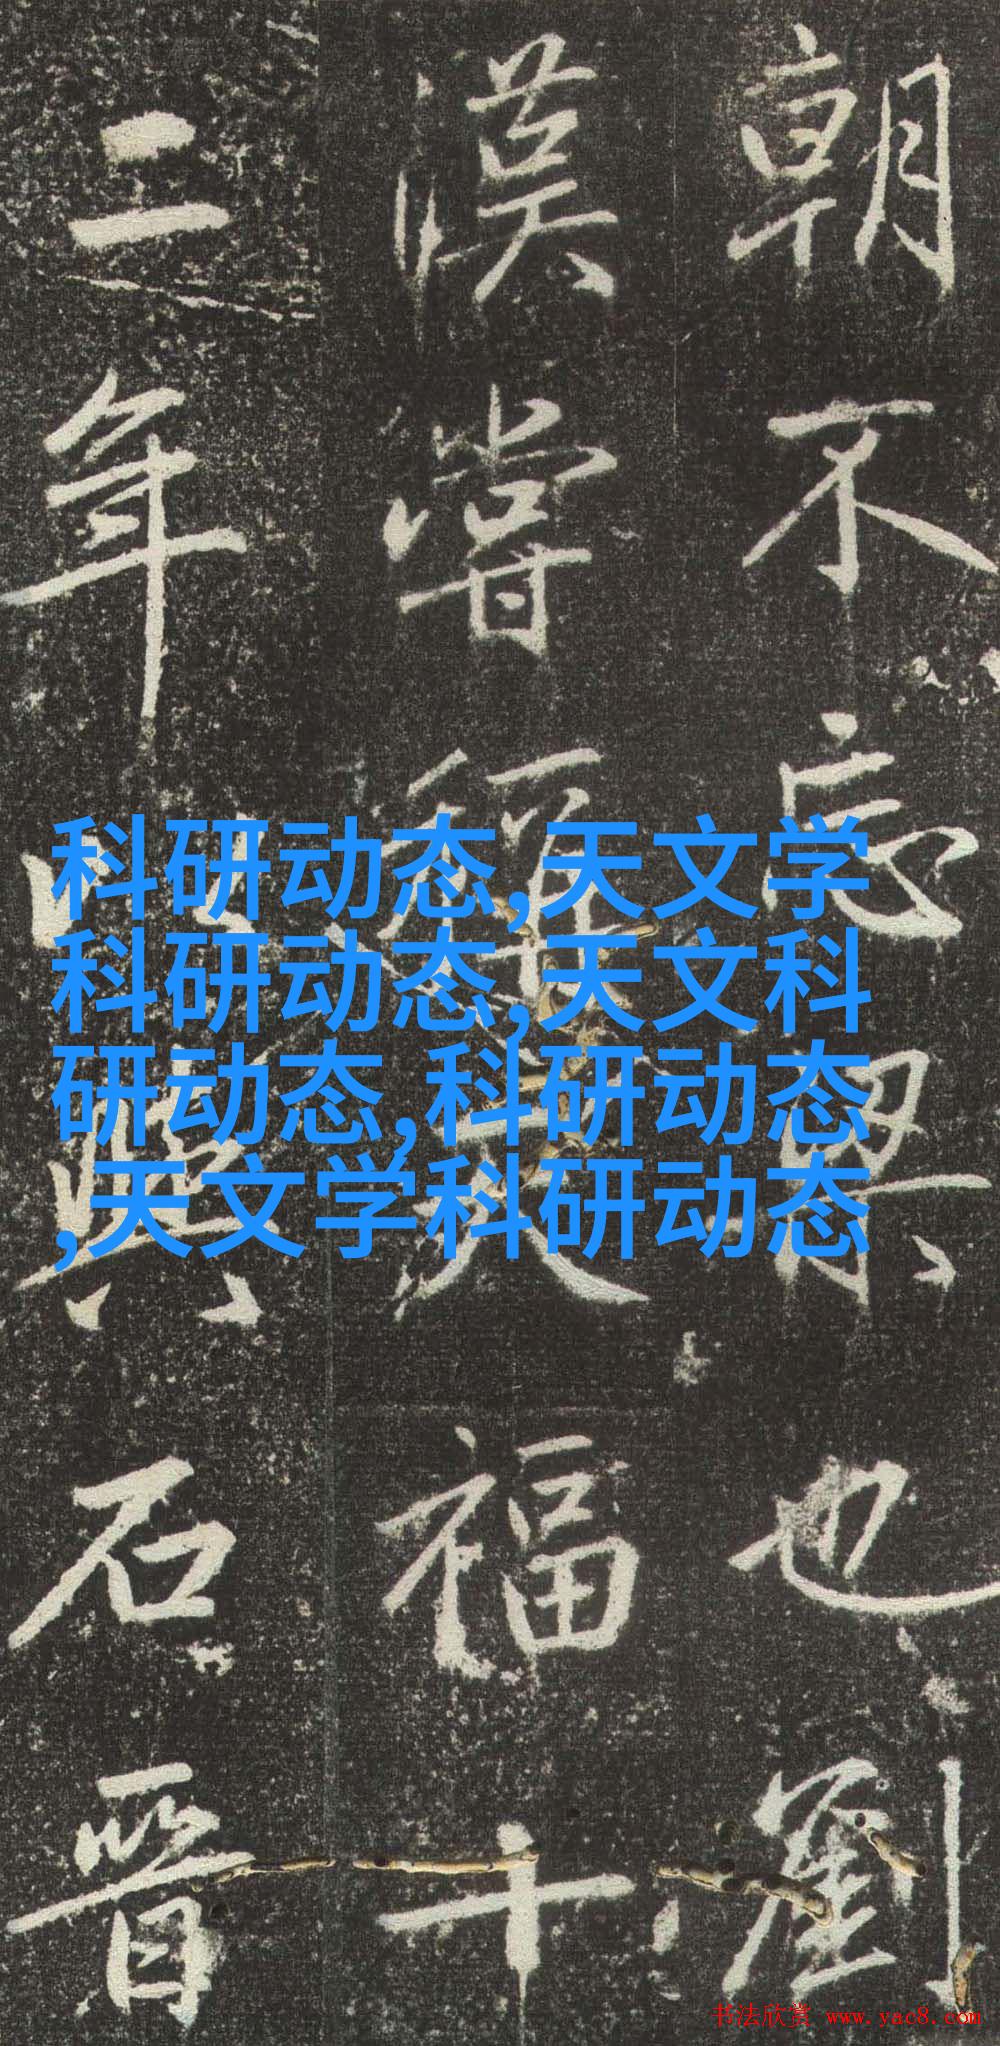 朝不忘梁也劉
漢嘗稱天福十
二年與石晉
科研动态,天文学
科研动态,天文科
研动态,科研动态
,天文学科研动态
书法欣赏 www.yac8.com